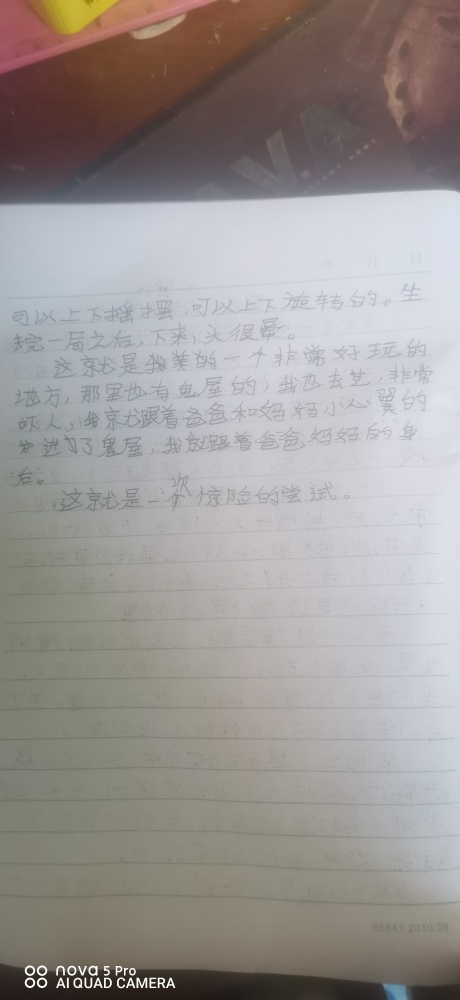 可以上下摇摆,可以上下旋转的。坐
完一局之后,下来,头很晕。
这就是我美的一个非常好玩的
地方,那里也有鬼屋的,我也去坐,非常
吓人,我就跟着爸爸和妈妈小心翼的
进了鬼屋,我就跟着爸爸妈妈的身
后。
这就是一次惊险的尝试。
年 月 日
00843.2010.09
nova 5 Pro
AI QUAD CAMERA